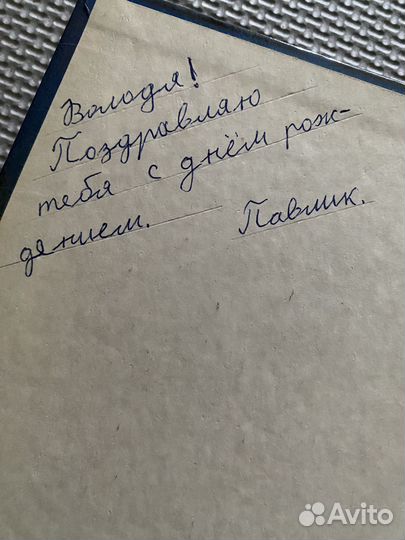 Володя!
Поздравляю
тебя с днём рож-
дением.
Павлик.
Avito